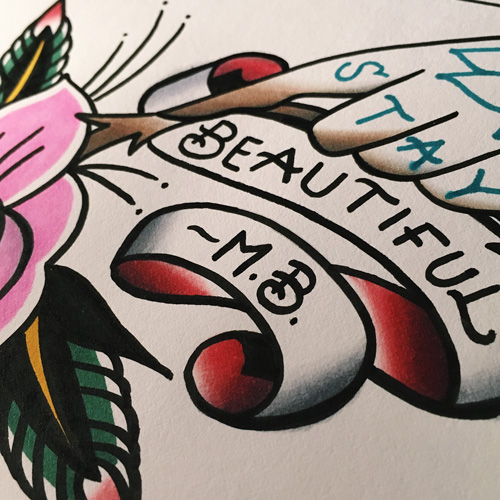 STAY
BEAUTIFUL
~M.B.